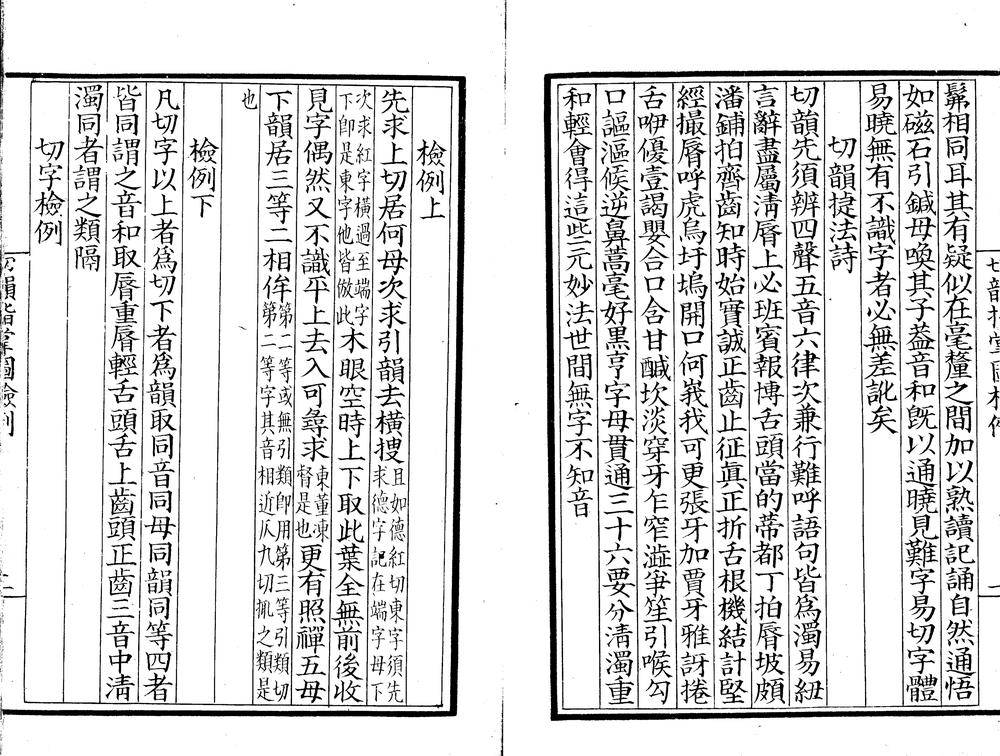 髴相同耳其有疑似在毫釐之間加以熟讀記誦自然通悟
如磁石引鍼母喚其子葢音和旣以通曉見難字易切字體
易曉無有不識字者必無差訛矣
切韻㨗法詩
切韻先須辨四聲五音六律次兼行難呼語句皆爲濁易紐
言辭盡屬淸脣上必班賓報博舌頭當的蒂都丁拍脣坡頗
潘鋪拍齊齒知時始實誠正齒止征眞正折舌根機結計堅
經撮脣呼虎烏圩塢開口何峩我可更張牙加賈牙雅訝捲
舌咿優壹謁嬰合口含甘鹹坎淡穿牙乍窄澁爭笙引喉勾
口謳漚候逆鼻蒿毫好黑亨字母貫通三十六要分淸濁重
和輕會得這些元妙法世間無字不知音
檢例上
先求上切居何母次求引韻去橫搜且如德紅切東字須先求德字記在端字母下
次求紅字橫過至端字下卽是東字他皆倣此木眼空時上下取此葉全無前後收
見字偶然又不識平上去入可尋求東董凍督是也更有照禪五母
下韻居三等二相侔第二等或無引類卽用第三等引類切第二等字其音相近仄九切㧕之類是
也
檢例下
凡切字以上者爲切下者爲韻取同音同母同韻同等四者
皆同謂之音和取脣重脣輕舌頭舌上齒頭正齒三音中淸
濁同者謂之類隔
切字檢例